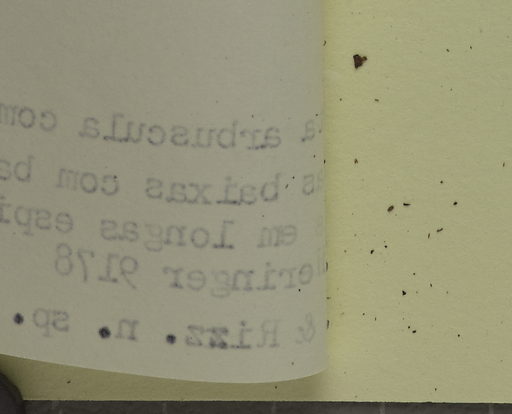 a arbuscula com
s baixas com ba
em longas espi
eringer 9178
& Rizz. n. sp.